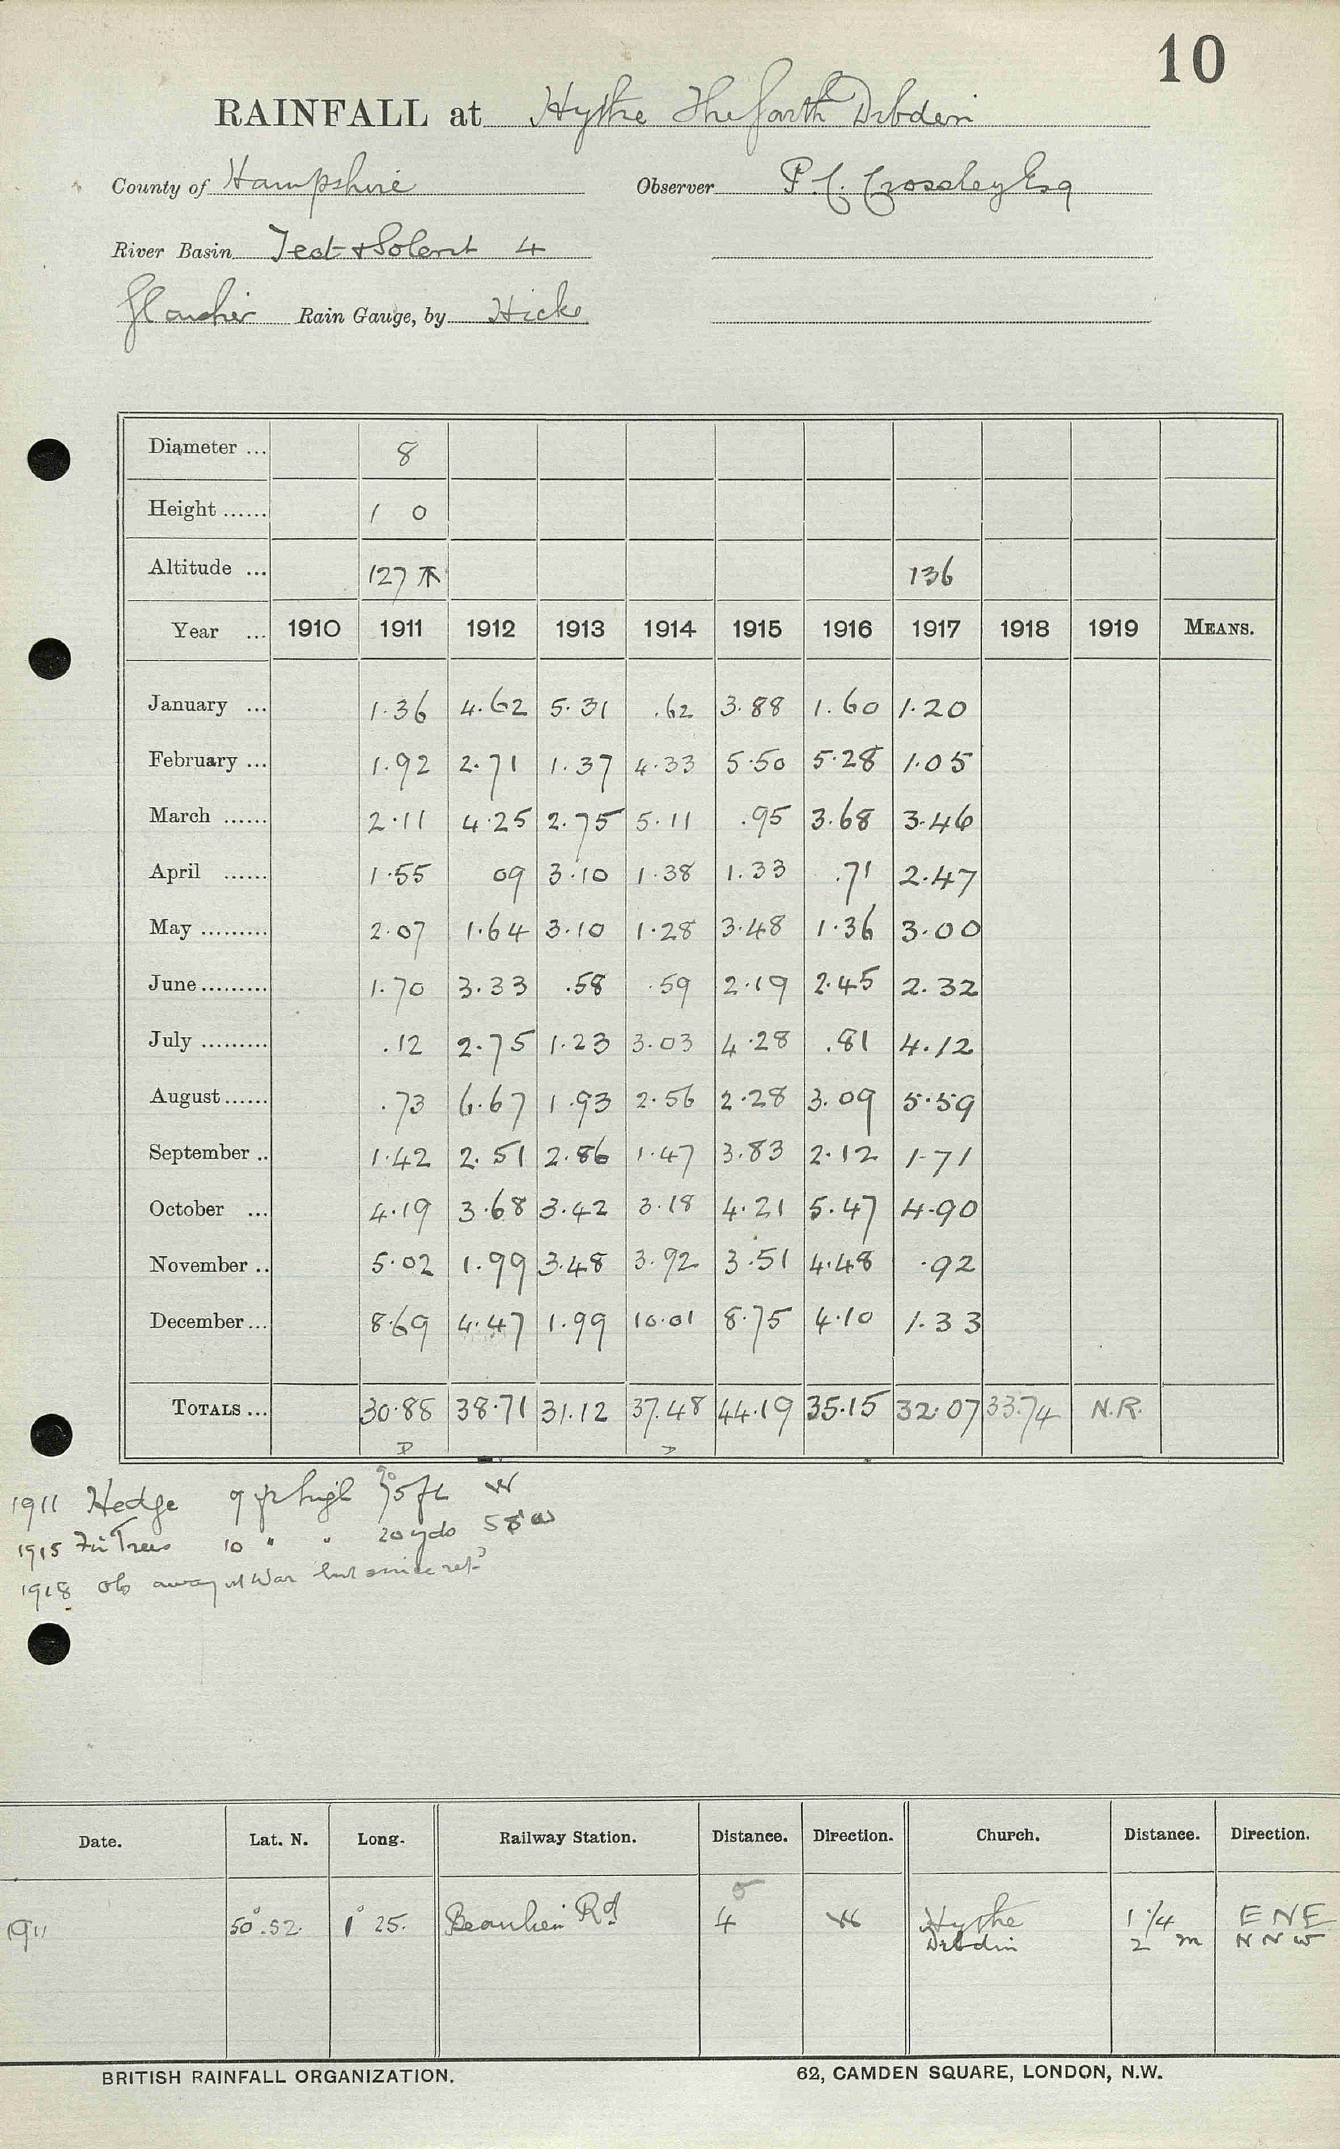 10
RAINFALL at Hythe The Garth Dibden
County of Hampshire Observer P. C. Crossley Esq
River Basin Test & Solent 4
Glaisher Rain Gauge, by Hicks
Diameter ... 8
Height ...... 1 0
Altitude ... 127 136
Year ... 1910 1911 1912 1913 1914 1915 1916 1917 1918 1919 MEANS.
January ... 1.36 4.62 5.31 .62 3.88 1.60 1.20
February ... 1.92 2.71 1.37 4.33 5.50 5.28 1.05
March ...... 2.11 4.25 2.75 5.11 .95 3.68 3.46
April ...... 1.55 09 3.10 1.38 1.33 .71 2.47
May ......... 2.07 1.64 3.10 1.28 3.48 1.36 3.00
June......... 1.70 3.33 .58 .59 2.19 2.45 2.32
July ......... .12 2.75 1.23 3.03 4.28 .81 4.12
August...... .73 6.67 1.93 2.56 2.28 3.09 5.59
September .. 1.42 2.51 2.86 1.47 3.83 2.12 1.71
October ... 4.19 3.68 3.42 3.18 4.21 5.47 4.90
November .. 5.02 1.99 3.48 3.92 3.51 4.48 .92
December... 8.69 4.47 1.99 10.01 8.75 4.10 1.33
TOTALS ... 30.88 38.71 31.12 37.48 44.19 35.15 32.07 33.74 N.R.
D D
1911 Hedge 9 ft high 75 ft W
1915 Fir Trees 10 " " 20 yds
1918 Ob away at War but since ret.d
Date. Lat. N. Long. Railway Station. Distance. Direction. Church. Distance. Direction.
1911 50°.52. 1° 25. Beaulieu Rd 4 W Hythe 1 1/4 ENE
Dibden 2 m NNW
BRITISH RAINFALL ORGANIZATION. 62, CAMDEN SQUARE, LONDON, N.W.